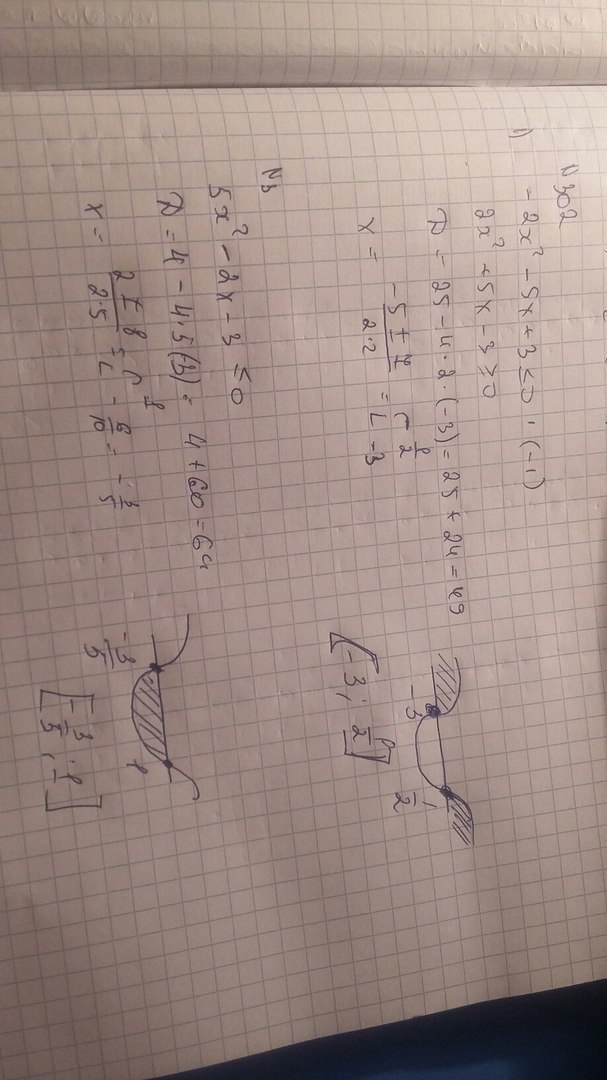 N 302
1) - 2x² - 5x + 3 ≤ 0 · (-1)
2x² + 5x - 3 ≥ 0
D = 25 - 4·2·(-3) = 25 + 24 = 49
x = (-5 ± 7)/(2·2) = [ 1/2 ; -3
-3 1/2
[-3; 1/2]
N3
5x² - 2x - 3 ≤ 0
D = 4 - 4·5(-3) = 4 + 60 = 64
x = (2 ± 8)/(2·5) = [ 1 ; -6/10 = -3/5
-3/5 1
[-3/5; 1]